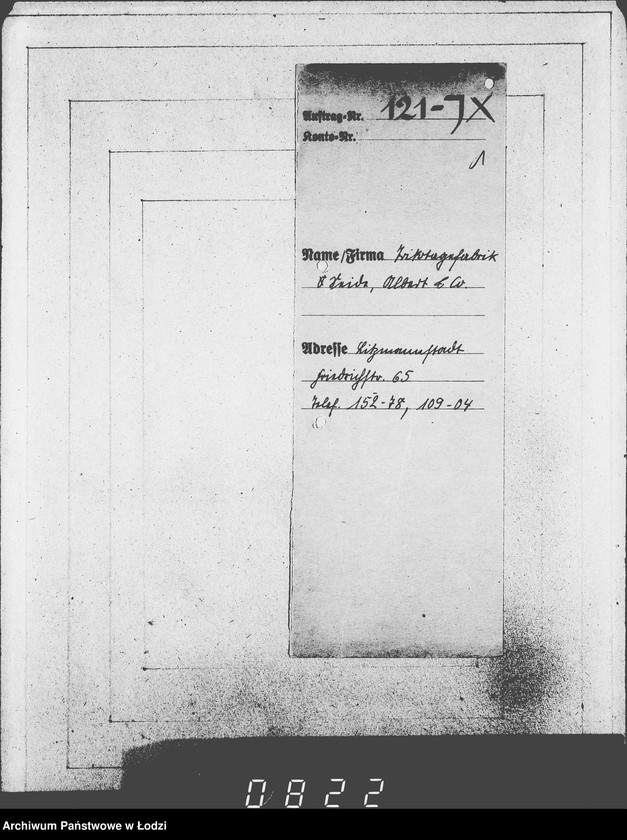 Auftrag-Nr. 121-JX
Konto-Nr.
1
Name/Firma Trikotagefabrik
Seide, Albert & Co.
Adresse Litzmannstadt
Friedrichstr. 65
Telef. 152-78, 109-04
0822
Archiwum Państwowe w Łodzi